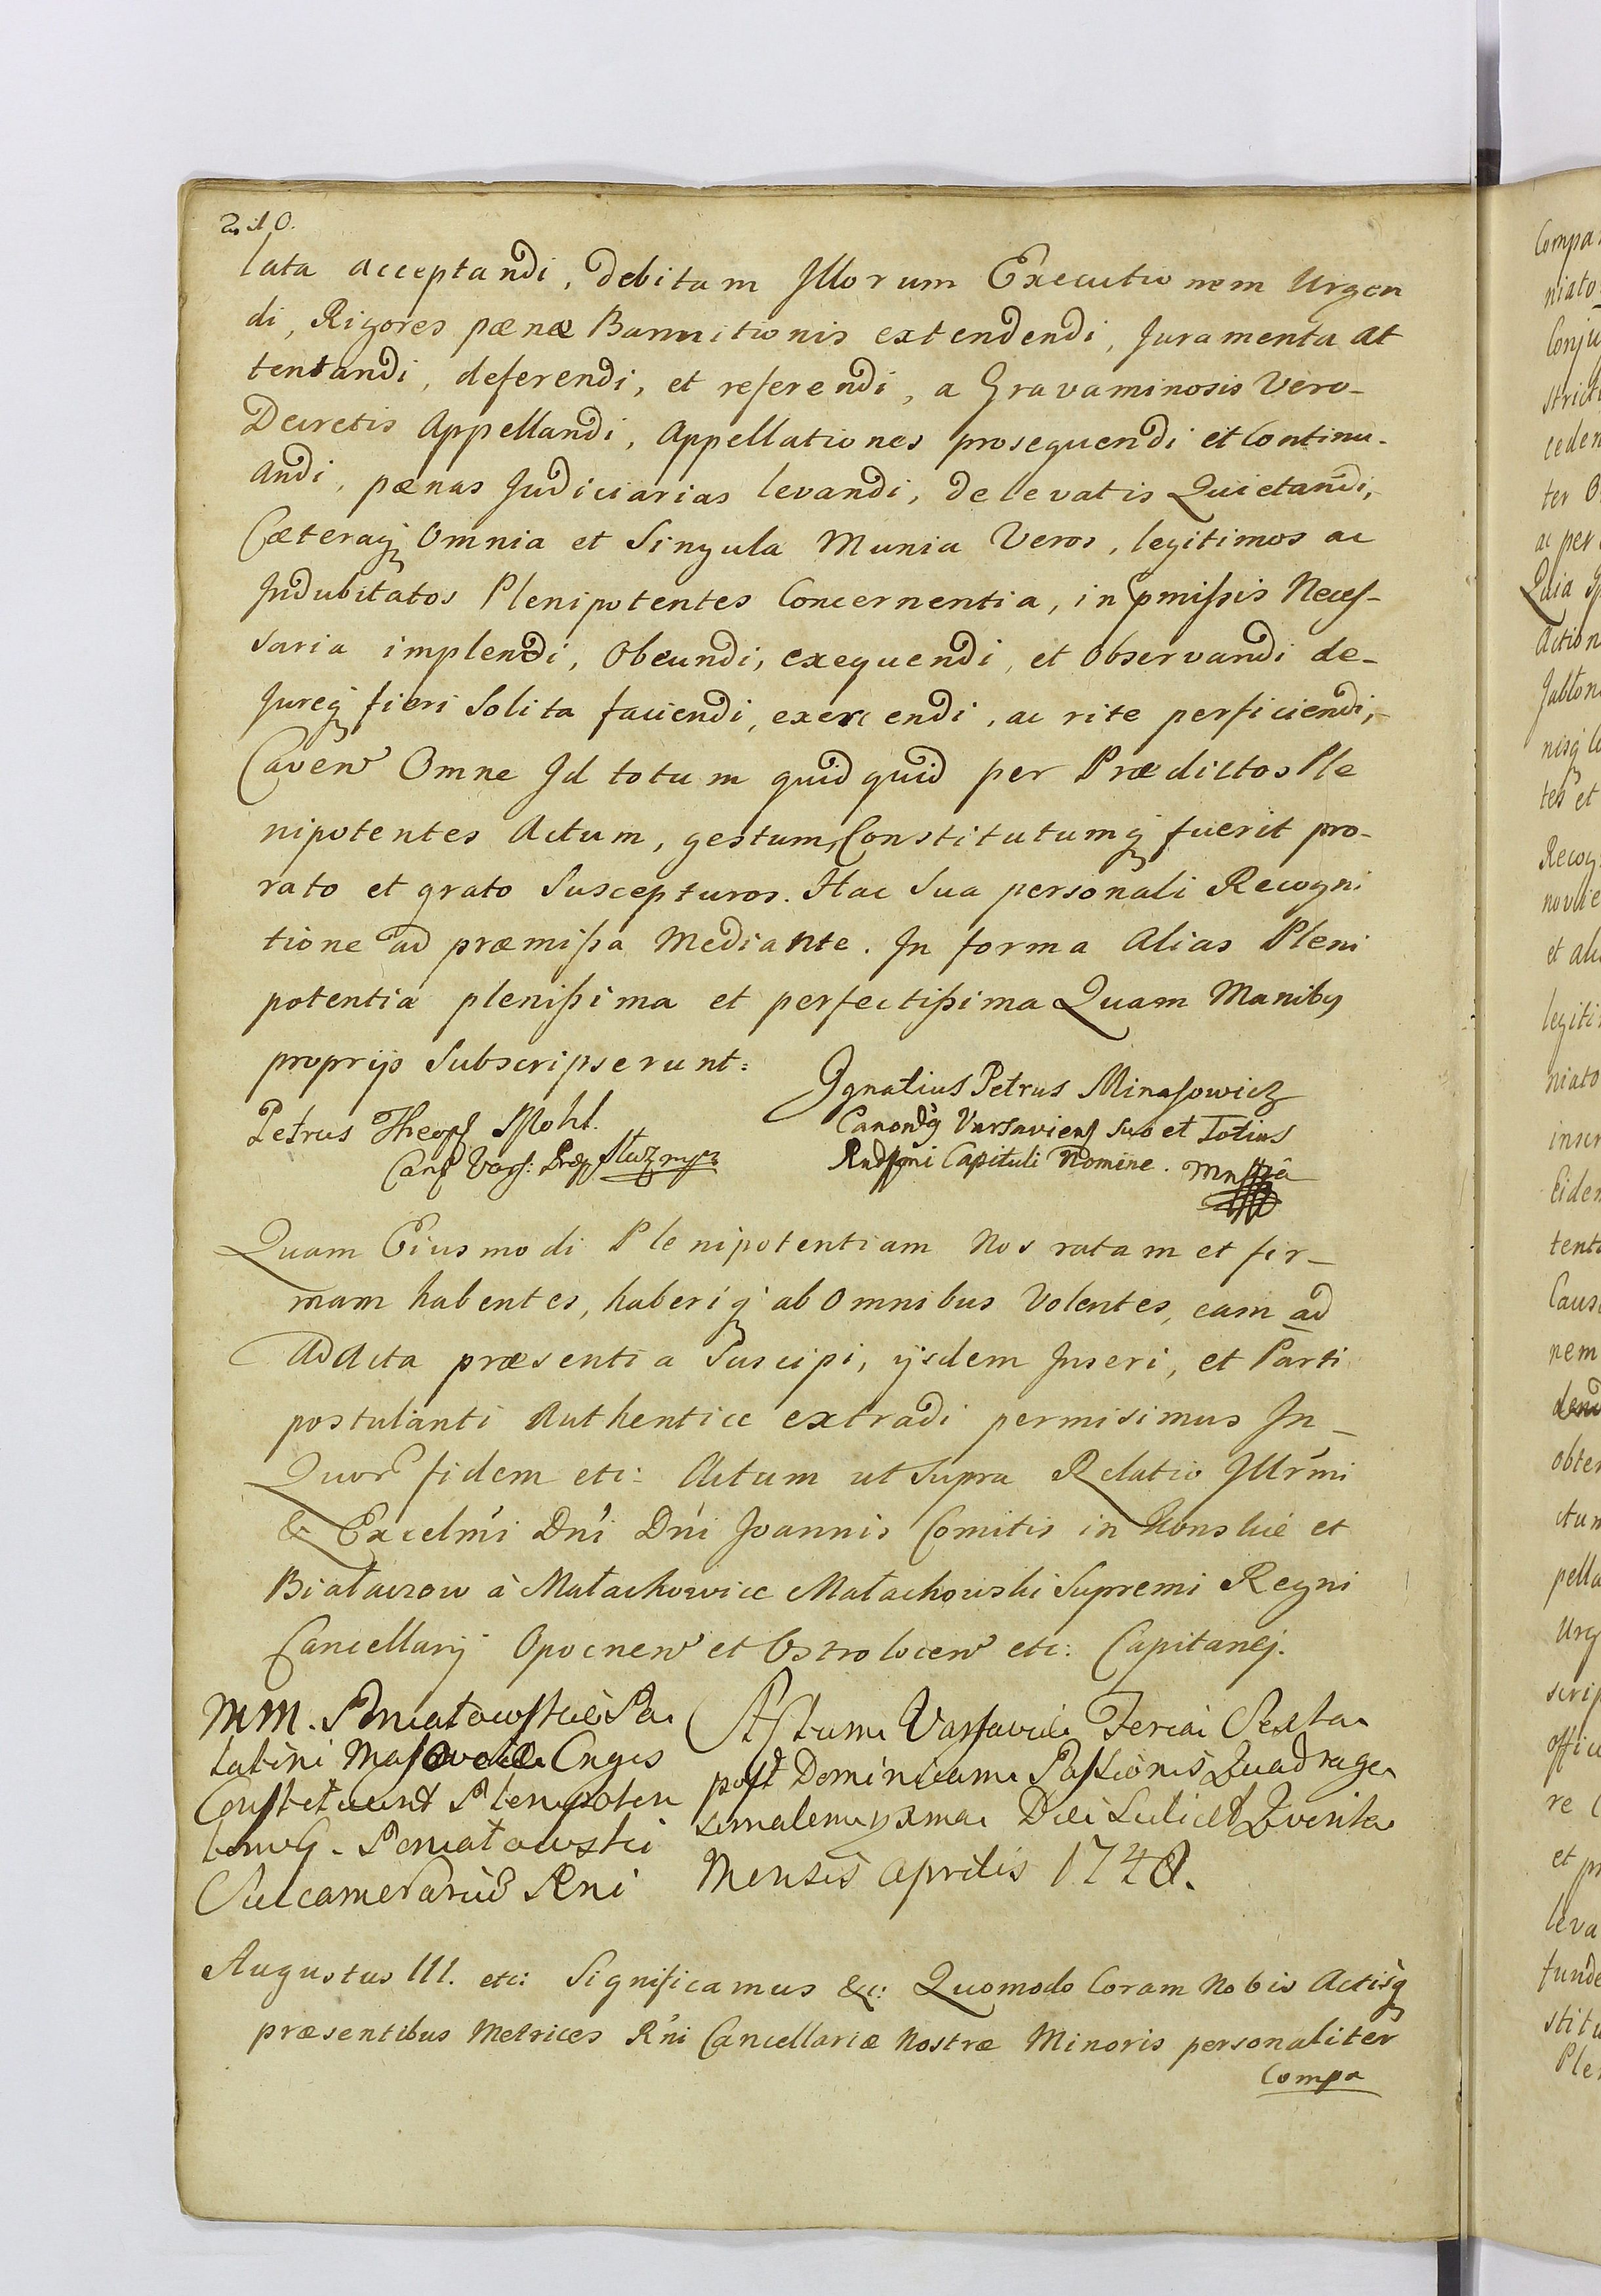 lata acceptandi, debitam Illorum Executionem Urgen
di, Rigores pænæ Bannitionis extendendi, Juramenta at
tentandi, deferendi, et referendi, a Gravaminosis Vero-
Decretis Appellandi, Appellationes prosequendi et Continu-
andi, pænas Judiciarias levandi, de levatis Quietandi,
Cæteraq Omnia et Singula Munia Veros, legitimos ac
Indubitatos Plenipotentes Concernentia, in pmissis Neces-
saria implendi, Obeundi, exequendi, et Observandi de-
Jureq fieri Solita faciendi, exercendi, ac rite perficiendi,
Caven Omne Id totum quidquid per Prædictos Ple
nipotentes Actum, gestum, Constitutumq fuerit pro-
rato et grato Suscepturos. Hac Sua personali Recogni
tione ad præmissa Mediante. In forma Alias Pleni
potentia plenissima et perfectissima Quam Manibq
proprijs Subscripserunt:
Ignatius Petrus Minasowicz
Petrus Theoph
Varsaviens suo et Totius
Capituli Nomine.
Quam Eiusmodi Plenipotentiam Nos ratam et fir-
mam habentes, haberiq ab Omnibus Volentes, eam ad
Ad Acta præsentia Suscipi, ijsdem Inseri, et Parti
postulanti Authentice extradi permisimus In-
Quor fidem etc: Actum ut Supra Relatio Illrmi
& Excelmi Dni Dni Joannis Comitis in Konskie et
Białaczow à Małachowice Małachowski Supremi Regni
Cancellarij Opocnen et Ostrolocen etc: Capitanej.
MM. Poniatowskie Pa
latini Masoviæ
Constituunt Plenipoten
tem G. Poniatowski
Succamerarius Rni
Actum Varsaviæ Feria Sexta
post Dominicam Passionis Quadrage
simalem pxma Die Scilicet
Mensis Aprilis 1740.
Augustus III. etc: Significamus &c: Quomodo Coram Nobis Actisq
præsentibus Metrices Rni Cancellariæ Nostræ Minoris personaliter
Compa